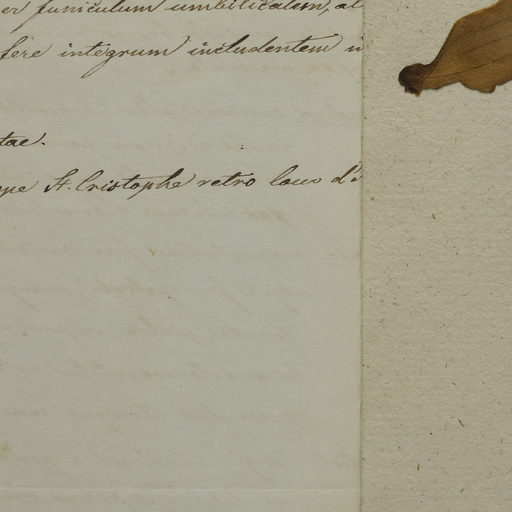 er funiculum umbilicalem, at
fere integrum includentem
tae.
pe St. Cristophe retro laco d'